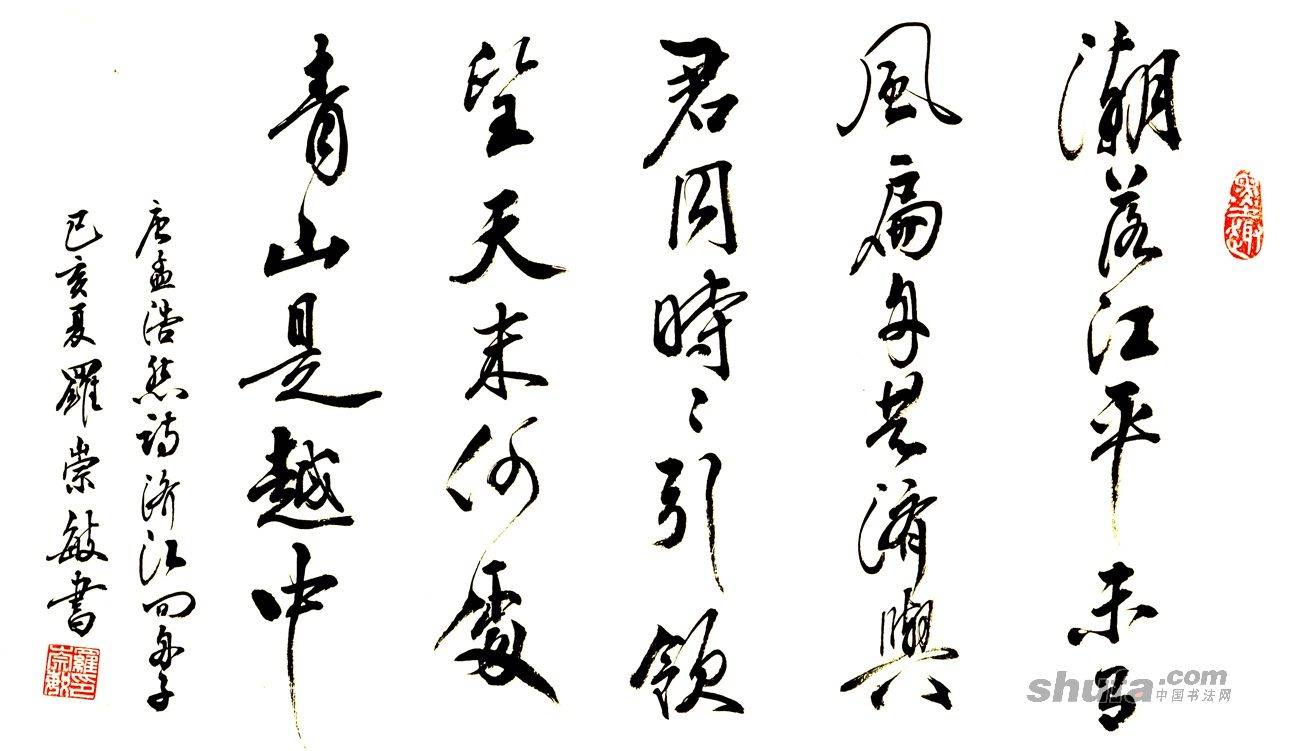 潮落江平未有
風扁舟共濟與
君同時〻引領
望天末何處
青山是越中
唐孟浩然詩濟江問舟子
己亥夏羅崇敏書
羅印崇敏
shufa.com
中国书法网